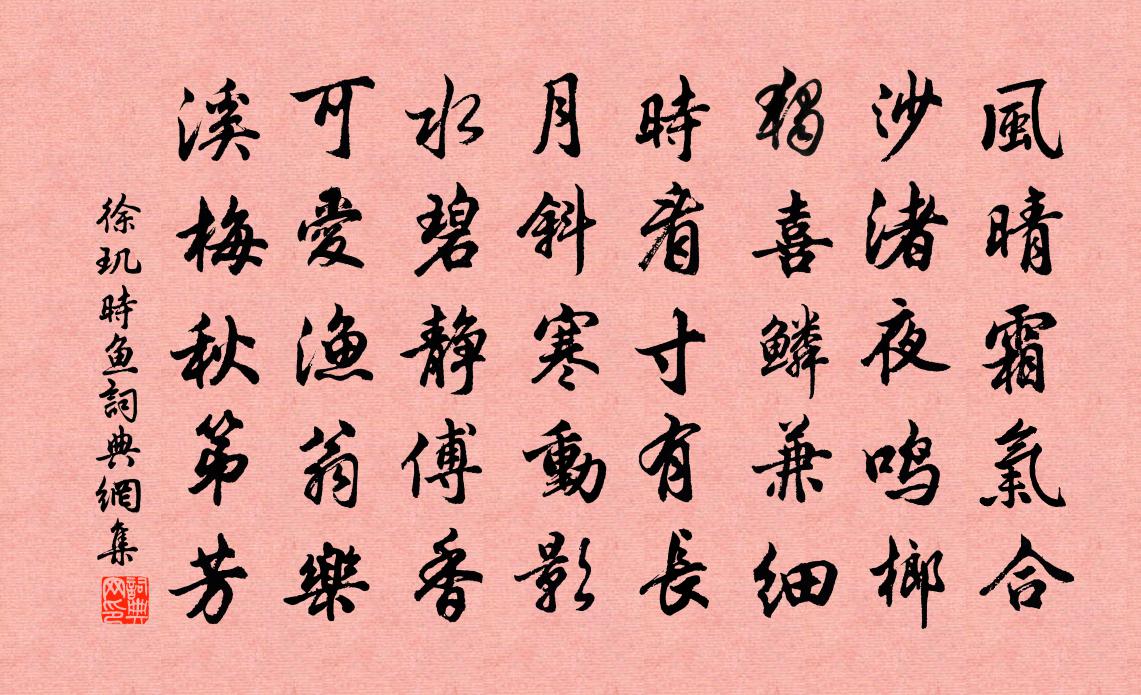 風晴霜氣合
沙渚夜鳴榔
獨喜鱗兼細
時看寸有長
月斜寒動影
水碧靜傳香
可愛漁翁樂
溪梅秋第芳
徐玑時魚詞典網集
詞典网印